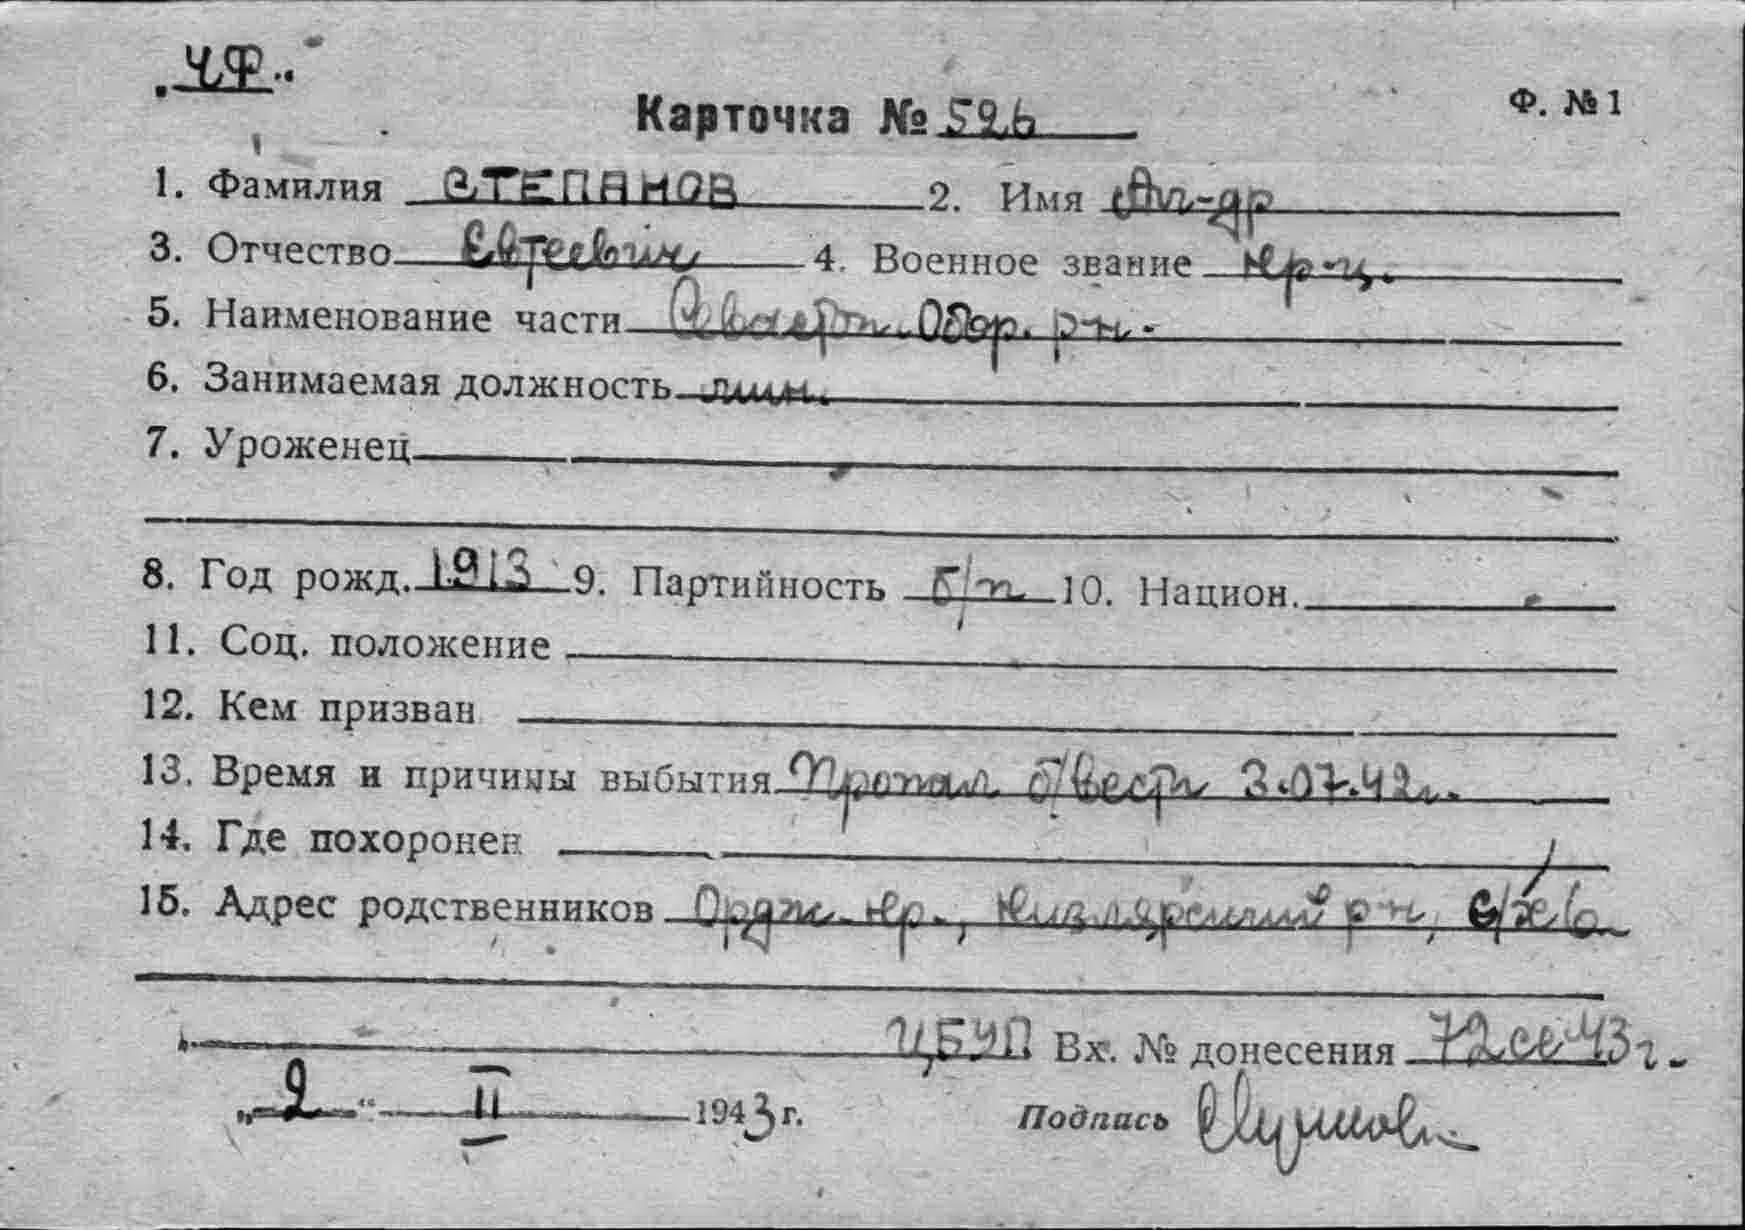 "ЧФ"
Карточка № 526 Ф. № 1
1. Фамилия СТЕПАНОВ 2. Имя Ал-др
3. Отчество Евтеевич 4. Военное звание кр-ц.
5. Наименование части Севастоп. Обор. р-н.
6. Занимаемая должность
7. Уроженец
8. Год рожд. 1913 9. Партийность б/п 10. Национ.
11. Соц. положение
12. Кем призван
13. Время и причины выбытия Пропал б/вести 3.07.42г.
14. Где похоронен
15. Адрес родственников Ордж. кр., Кизлярский р-н,
ЦБУП Вх. № донесения 72сс 43г.
"2" II 1943 г. Подпись